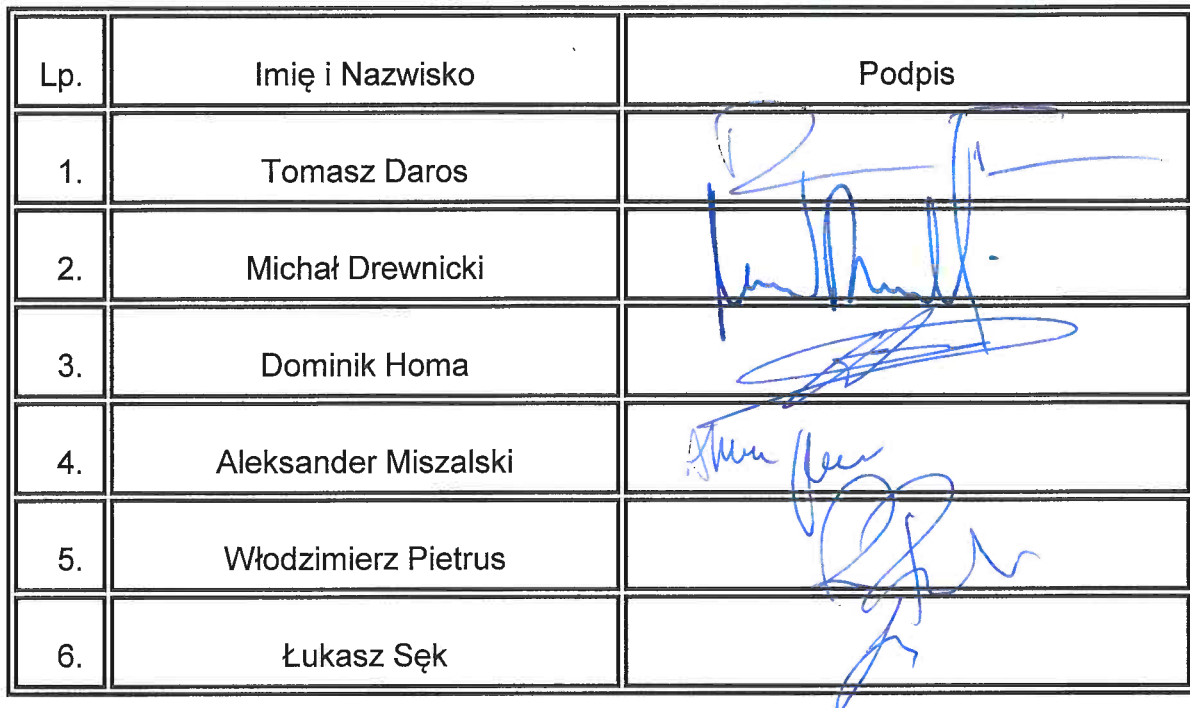 Lp. Imię i Nazwisko Podpis
1. Tomasz Daros
2. Michał Drewnicki
3. Dominik Homa
4. Aleksander Miszalski
5. Włodzimierz Pietrus
6. Łukasz Sęk